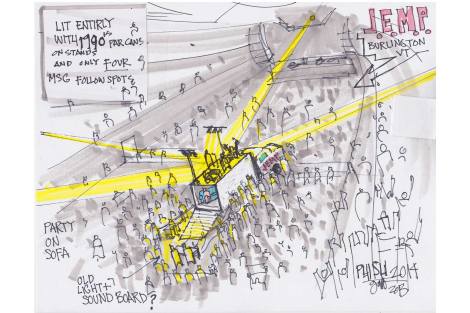 LIT ENTIRLY
WITH 1990s PAR CANS
ON STANDS
AND ONLY FOUR
MSG FOLLOW SPOTS
J.E.M.P.
BURLINGTON
VT
JEMP
PARTY
ON
SOFA
OLD
LIGHT +
SOUND BOARD?
PHISH 2014